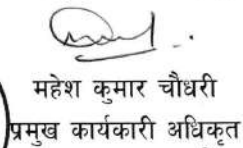 महेश कुमार चौधरी
प्रमुख कार्यकारी अधिकृत